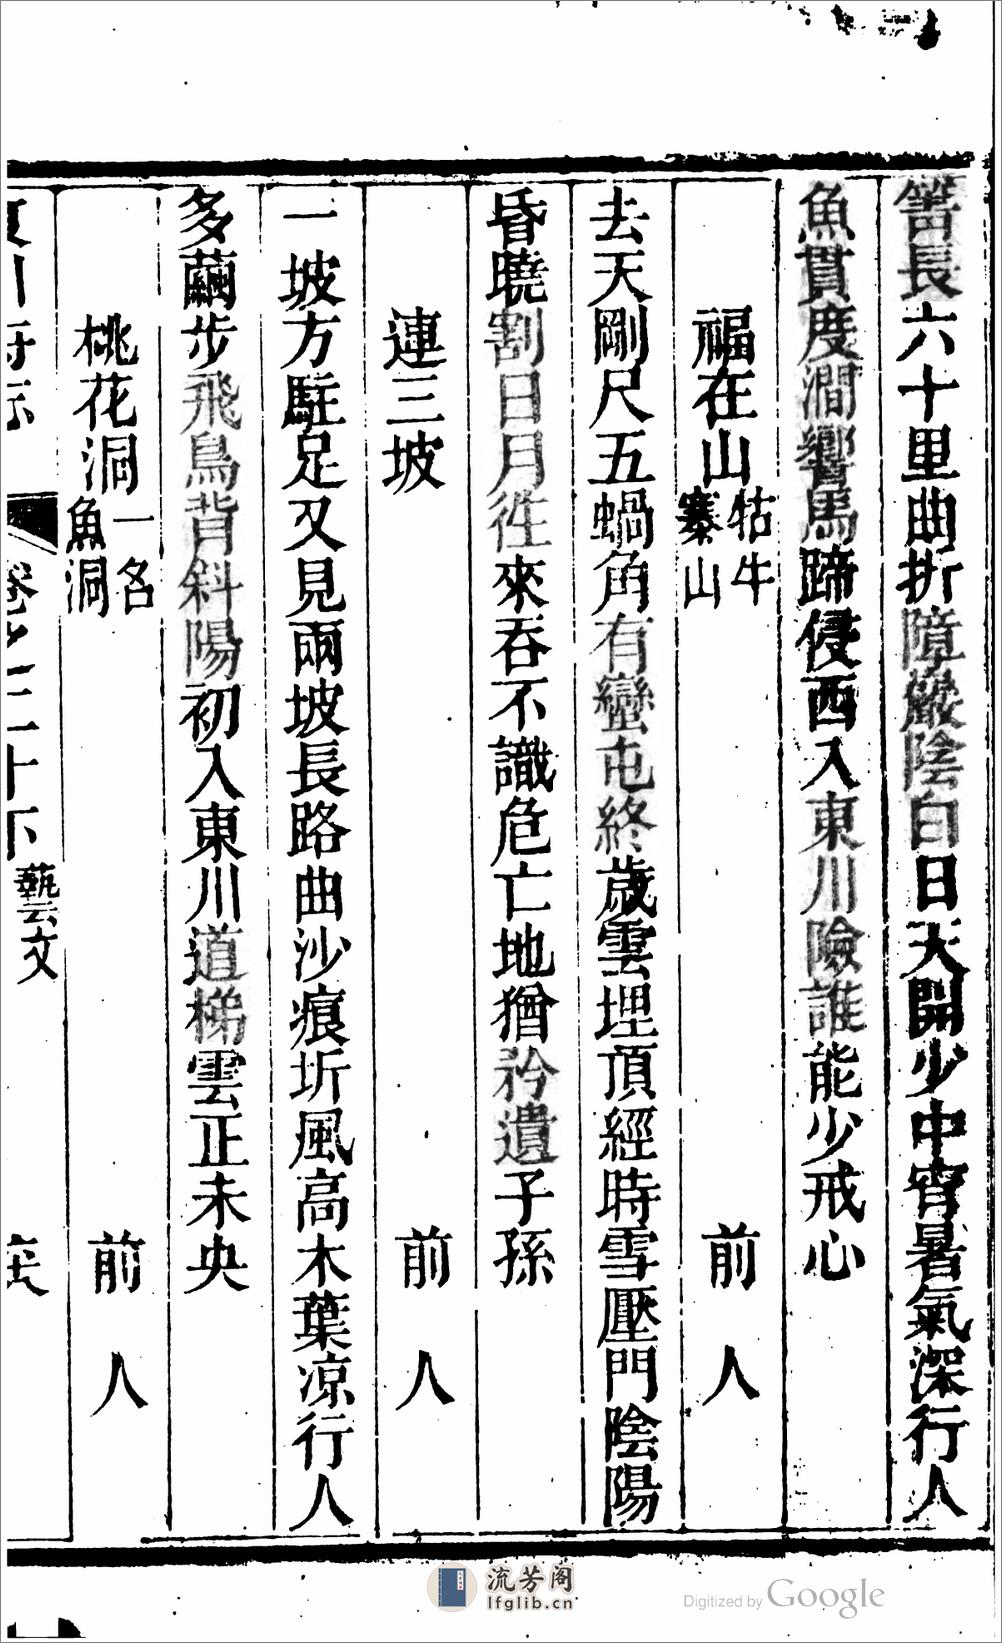 箐長六十里曲折障巖陰白日天開少中宵暑氣深行人
魚貫度澗響馬蹄侵西入東川險誰能少戒心
福在山牯牛寨山 前人
去天剛尺五蝸角有蠻屯終歲雲埋頂經時雪壓門陰陽
昏曉割日月徃來吞不識危亡地猶矜遺子孫
連三坡 前人
一坡方駐足又見兩坡長路曲沙痕圻風高木葉凉行人
多繭步飛鳥背斜陽初入東川道梯雲正未央
桃花洞一名魚洞 前人
卷之二十下 藝文
流芳阁
lfglib.cn
Digitized by Google